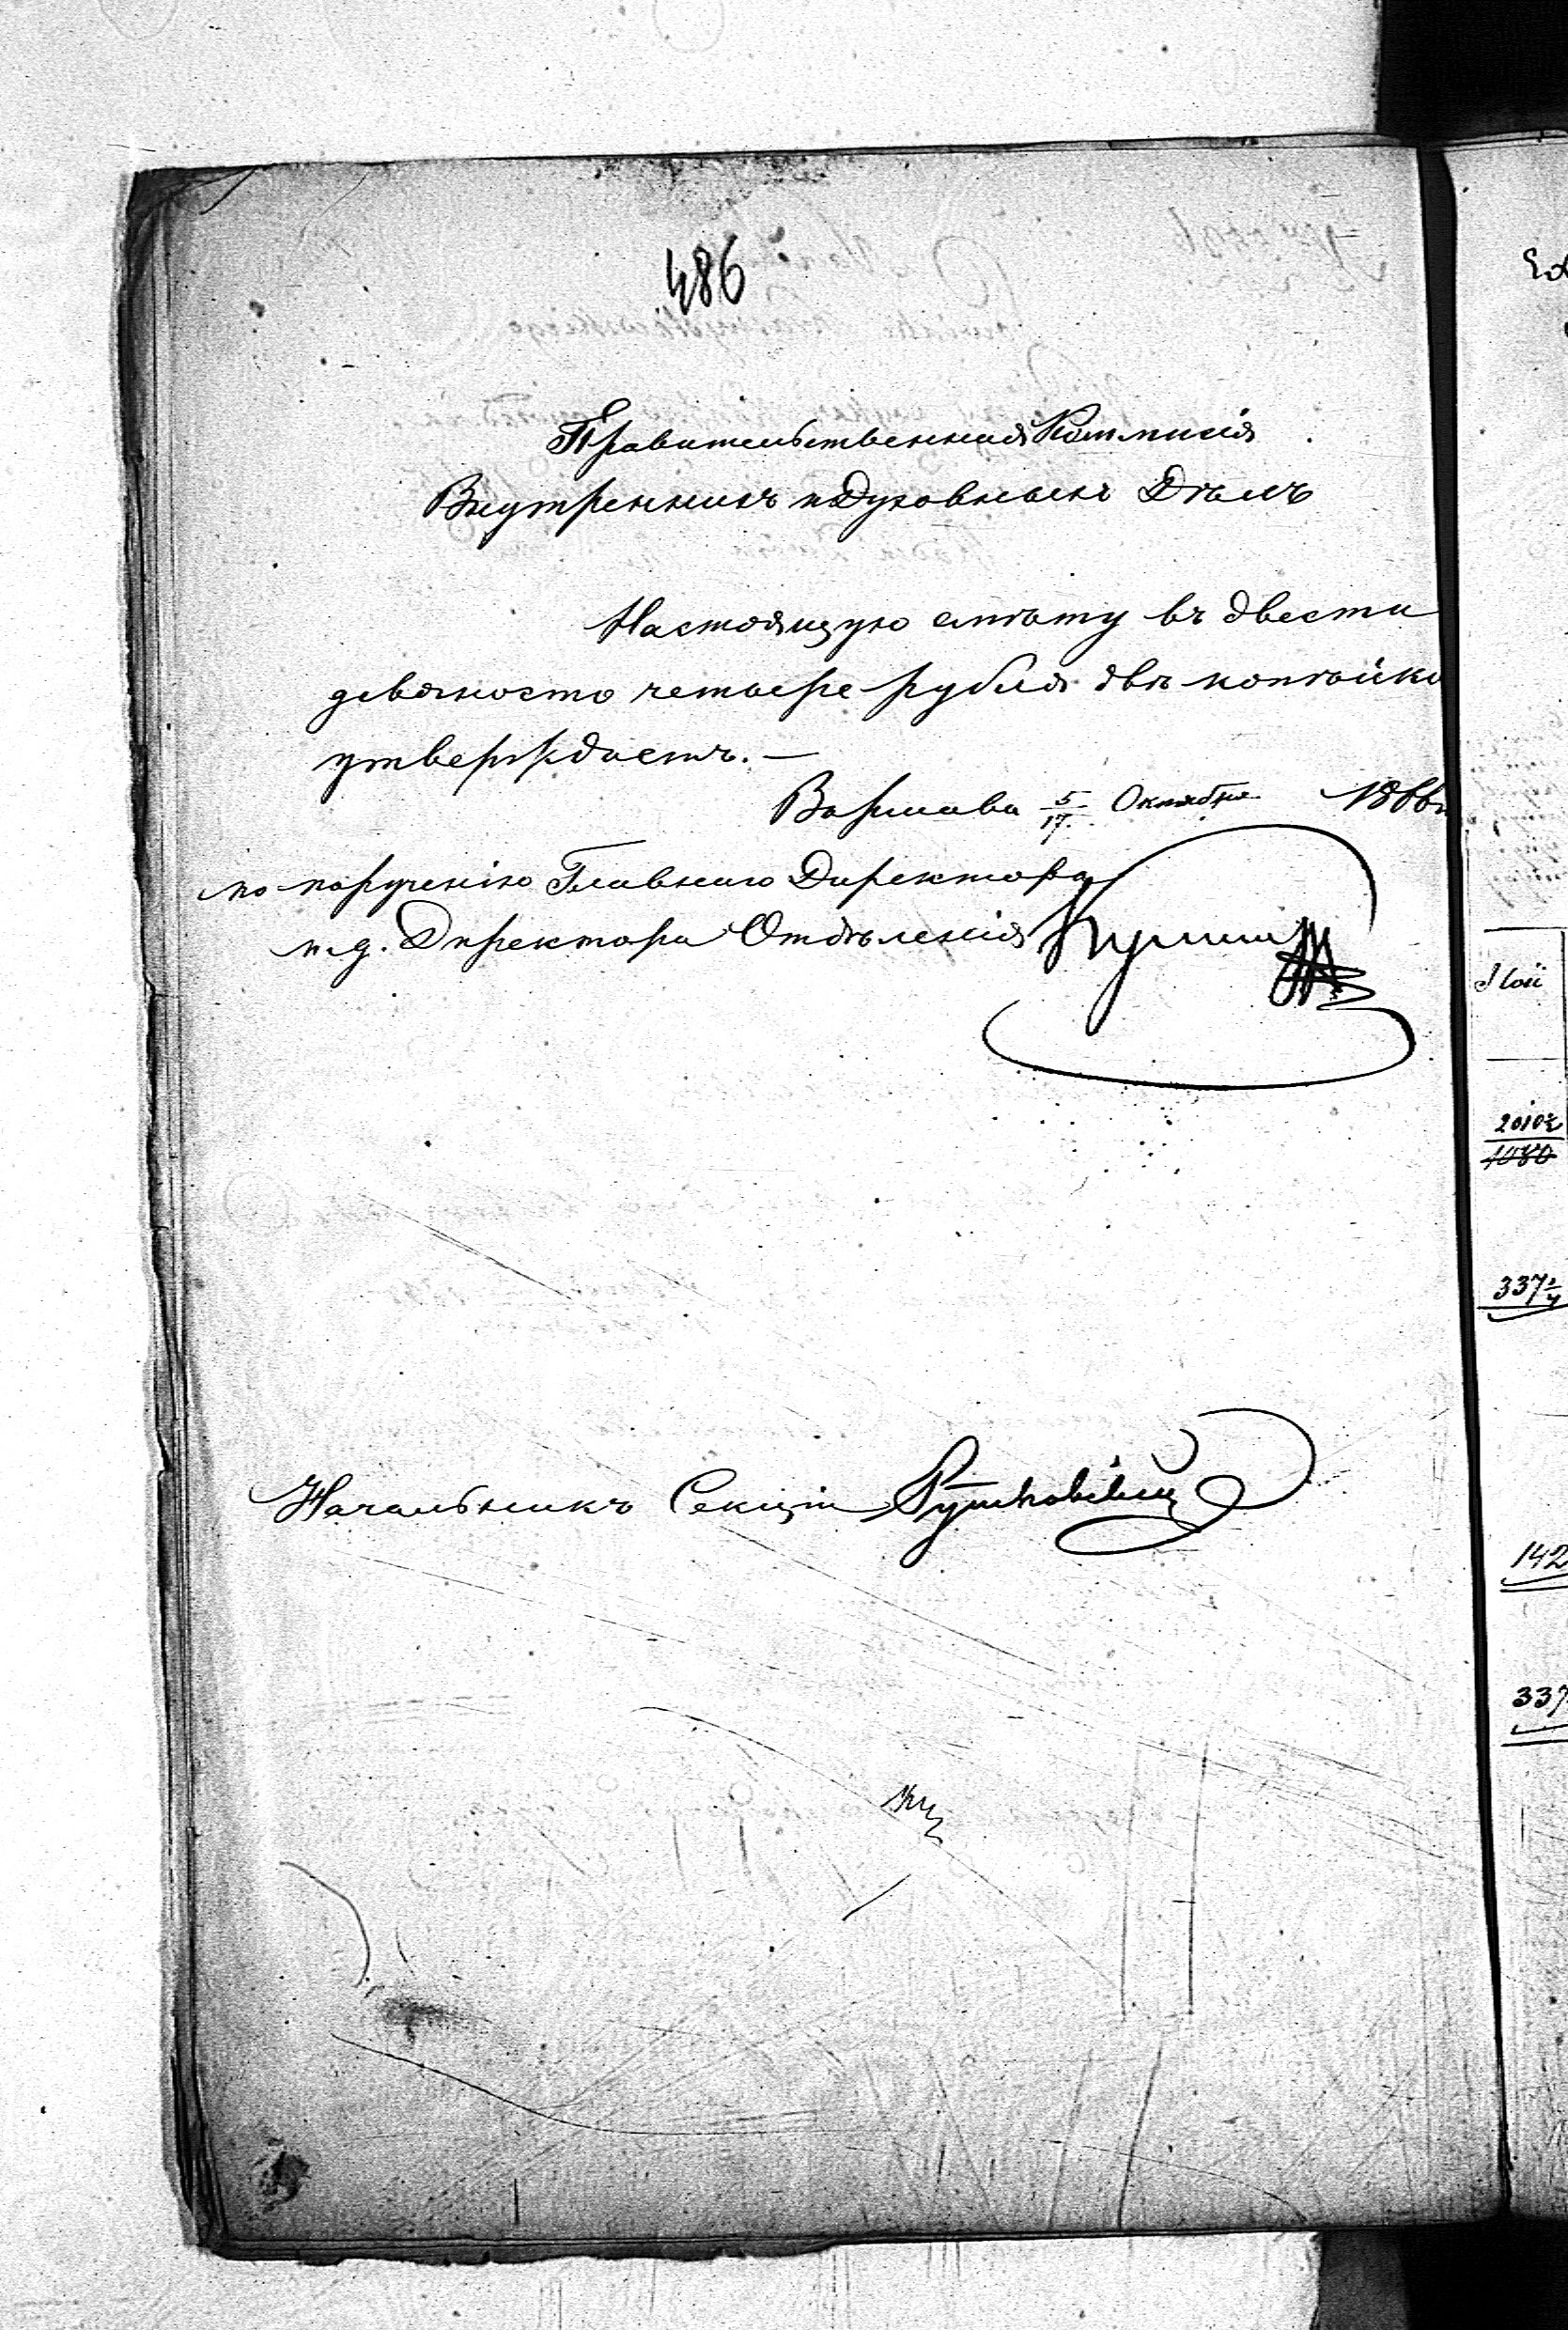 486
Правительственная Коммисія
Внутреннихъ и Духовныхъ Дѣлъ
Настоящую смѣту въ двести
девяносто четыре рубля двѣ копѣйки
утверждаетъ. —
Варшава 5/17 Октября 1866
по порученію Главнаго Директора
и. д. Директора Отдѣленія
Начальникъ Секціи
337 1/4
142
337